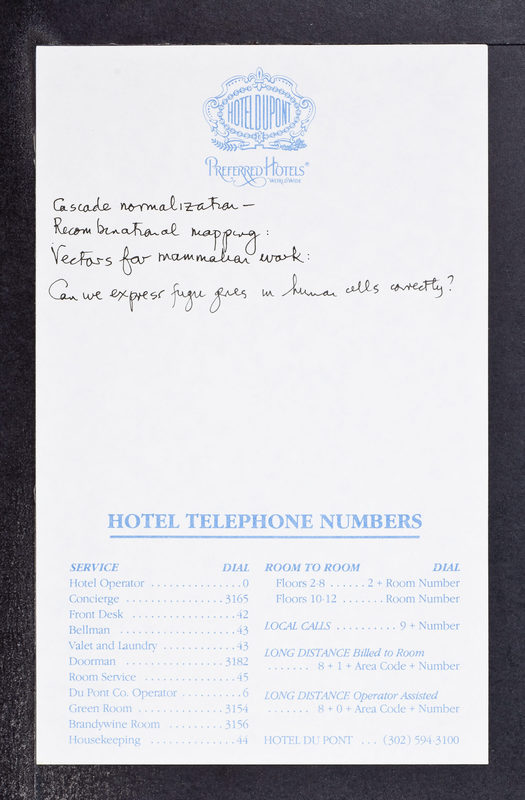 HOTEL DUPONT
PREFERRED HOTELS®
WORLDWIDE
Cascade normalization —
Recombinational mapping :
Vectors for mammalian work :
Can we express fugu genes in human cells correctly?
HOTEL TELEPHONE NUMBERS
SERVICE DIAL
Hotel Operator ............... 0
Concierge ................. 3165
Front Desk .................. 42
Bellman .................... 43
Valet and Laundry ............. 43
Doorman ................. 3182
Room Service ................ 45
Du Pont Co. Operator .......... 6
Green Room .............. 3154
Brandywine Room ......... 3156
Housekeeping .............. 44
ROOM TO ROOM DIAL
Floors 2-8 ...... 2 + Room Number
Floors 10-12 ....... Room Number
LOCAL CALLS .......... 9 + Number
LONG DISTANCE Billed to Room
....... 8 + 1 + Area Code + Number
LONG DISTANCE Operator Assisted
....... 8 + 0 + Area Code + Number
HOTEL DU PONT ... (302) 594-3100